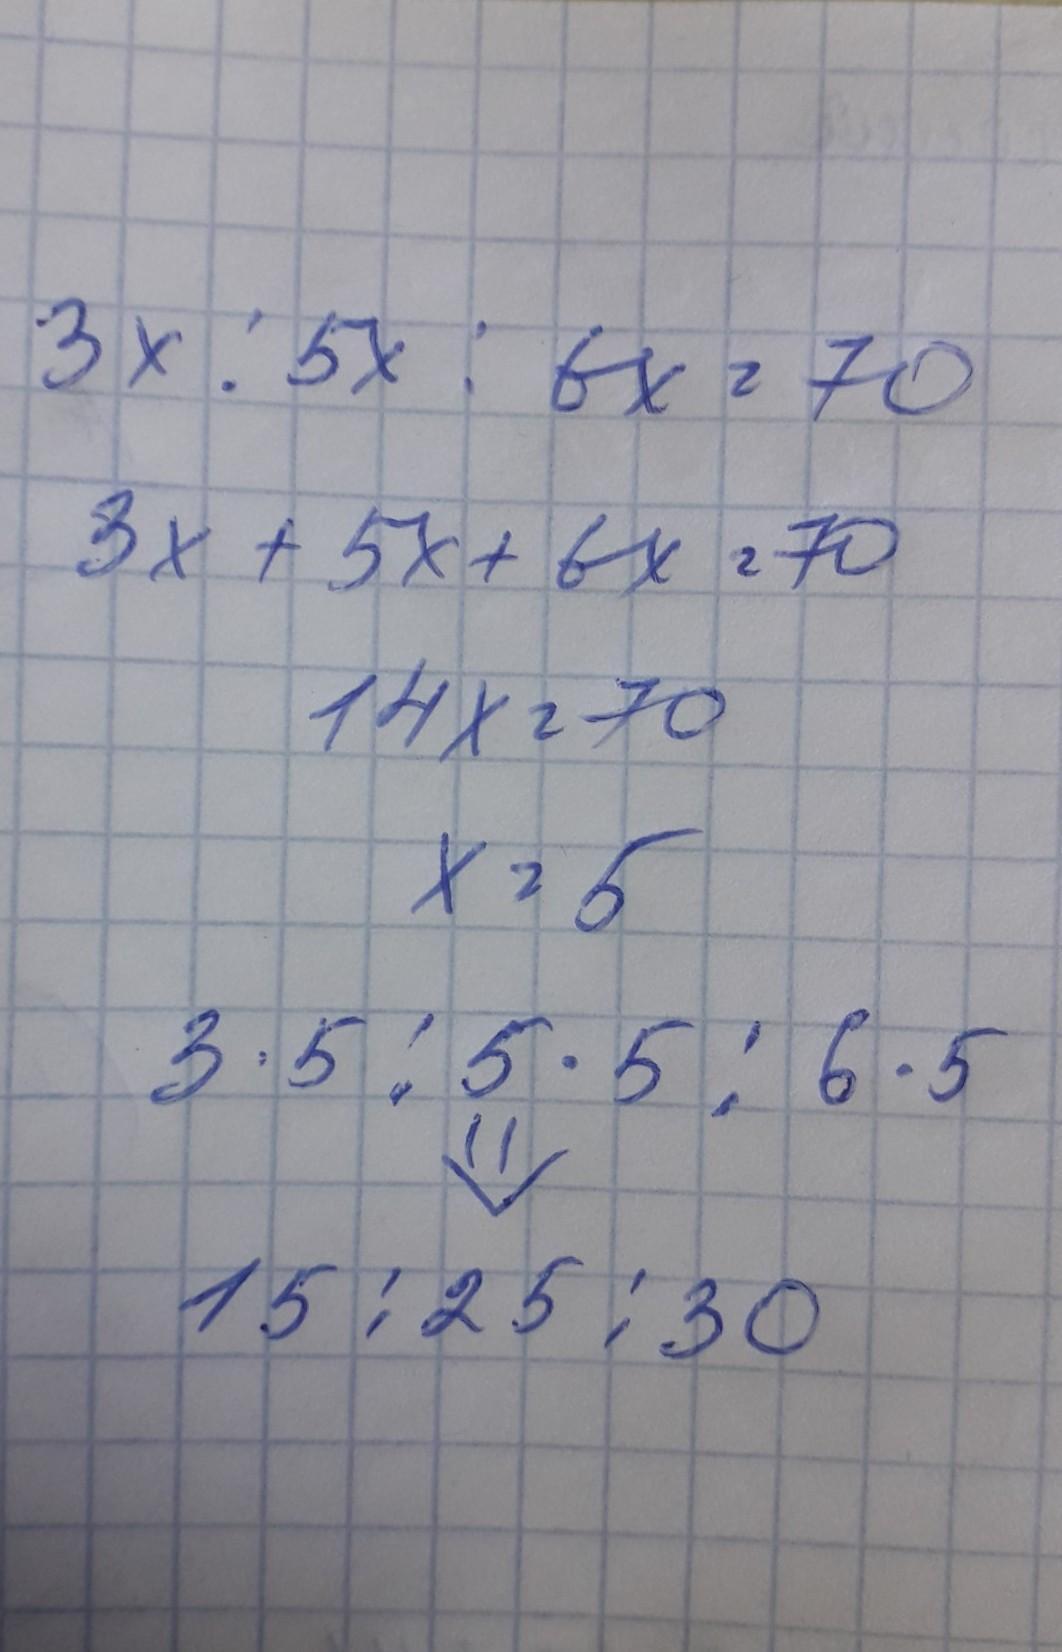 3x : 5x : 6x = 70
3x + 5x + 6x = 70
14x = 70
x = 5
3 · 5 : 5 · 5 : 6 · 5
⇓
15 : 25 : 30